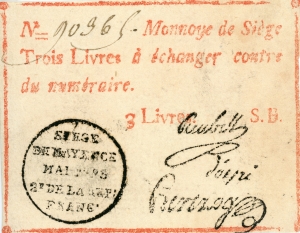 No 90365. Monnoye de Siège
Trois Livres à échanger contre
du numéraire.
3 Livres. S.D.
Reubell
SIEGE
DE MAYENCE
MAI 1793
2e DE LA REP.
FRANC.